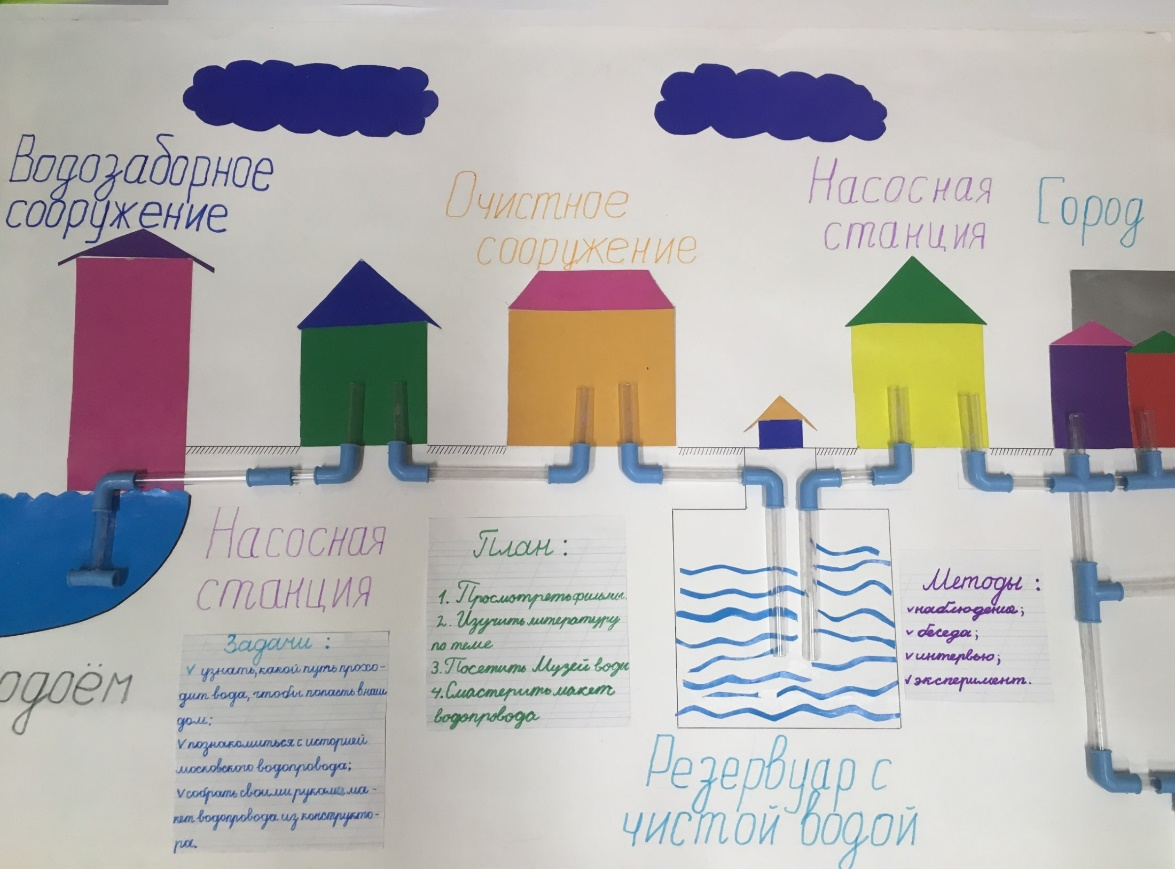 Водозаборное
сооружение
Очистное
сооружение
Насосная
станция
Город
Насосная
станция
Задачи :
✓ узнать, какой путь прохо-
дит вода, чтобы попасть в наш
дом;
✓ познакомиться с историей
московского водопровода;
✓ собрать своими руками ма-
кет водопровода из конструкто-
ра.
План :
1. Просмотреть фильмы.
2. Изучить литературу
по теме
3. Посетить Музей воды
4. Смастерить макет
водопровода
Методы :
✓ наблюдения;
✓ беседа;
✓ интервью;
✓ эксперимент.
одоём
Резервуар с
чистой водой